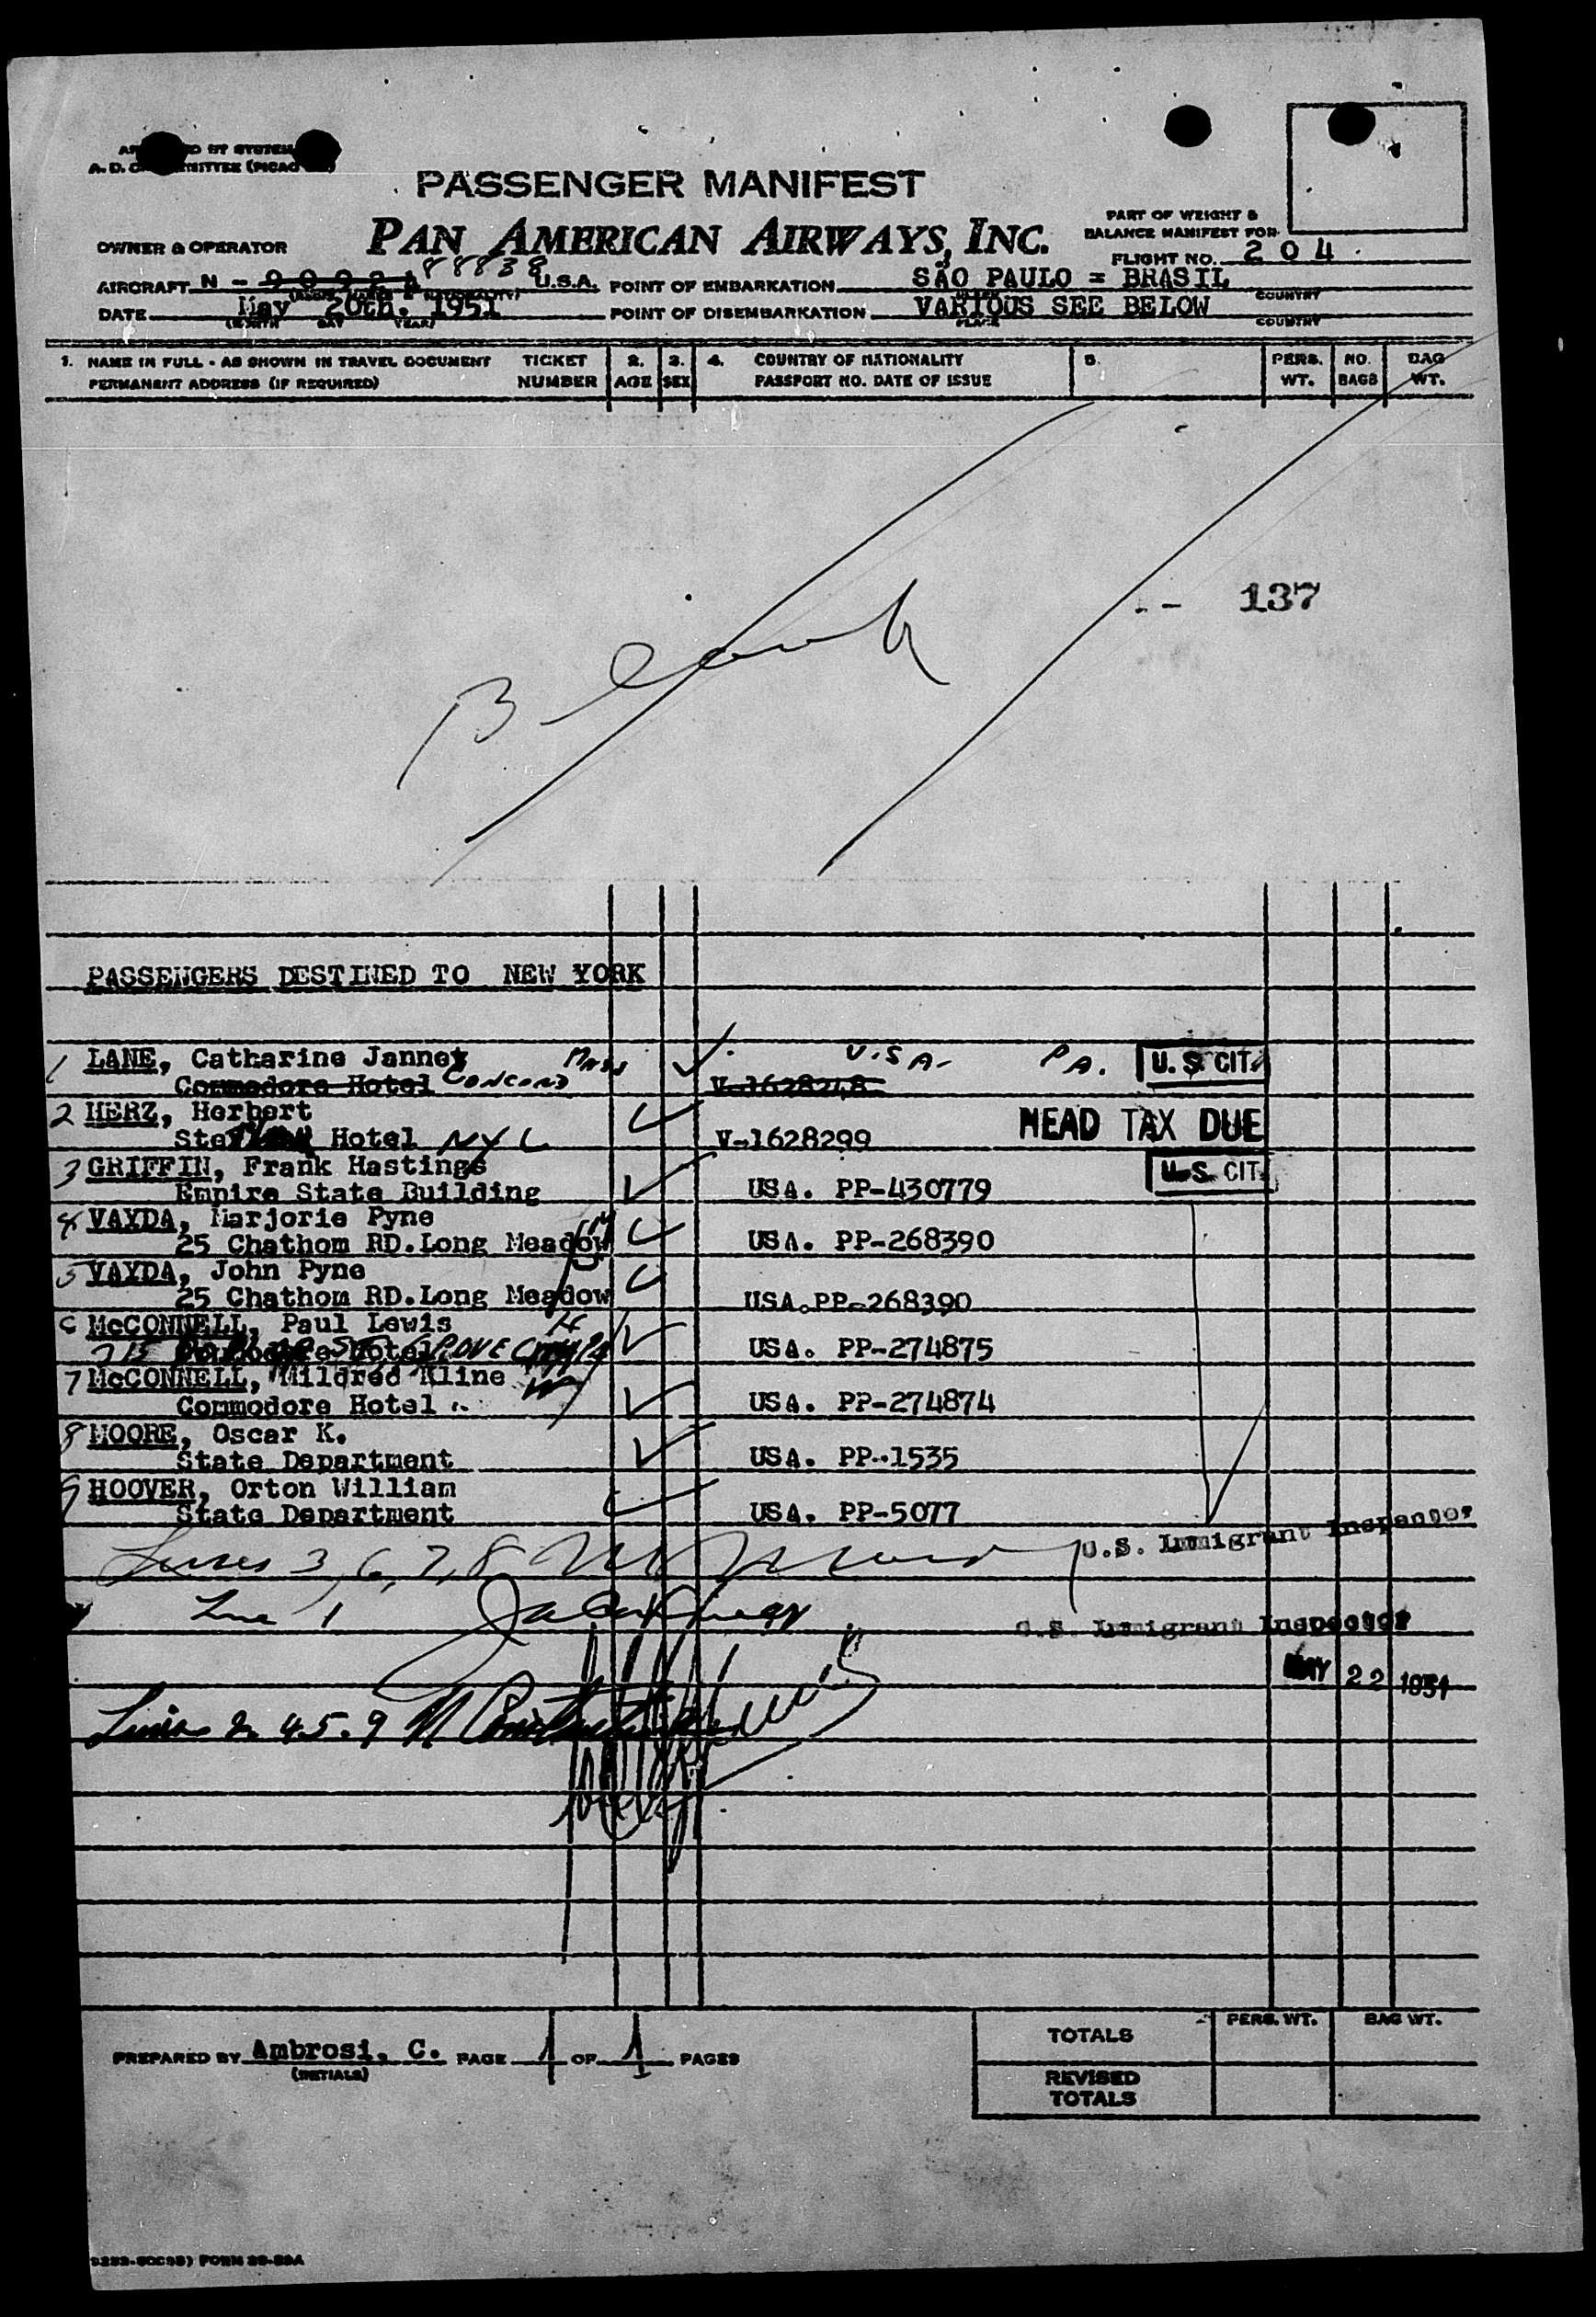 PASSENGER MANIFEST
OWNER & OPERATOR PAN AMERICAN AIRWAYS, INC.
PART OF WEIGHT &
BALANCE MANIFEST FOR
FLIGHT NO. 204
AIRCRAFT N - 88838 U.S.A. POINT OF EMBARKATION SÃO PAULO = BRASIL
COUNTRY
DATE May 20th. 1951 POINT OF DISEMBARKATION VARIOUS SEE BELOW
(MONTH DAY YEAR) PLACE COUNTRY
1. NAME IN FULL - AS SHOWN IN TRAVEL DOCUMENT TICKET 2. 3. 4. COUNTRY OF NATIONALITY 5. PERS. NO. BAG
PERMANENT ADDRESS (IF REQUIRED) NUMBER AGE SEX PASSPORT NO. DATE OF ISSUE WT. BAGS WT.
-- 137
Blank
PASSENGERS DESTINED TO NEW YORK
1 LANE, Catharine Janney Mass U.S.A. PA. U.S. CIT.
Commodore Hotel Concord V-1628248
2 HERZ, Herbert HEAD TAX DUE
Hotel NYC V-1628299
3 GRIFFIN, Frank Hastings U.S. CIT.
Empire State Building USA. PP-430779
4 VAYDA, Marjorie Pyne
25 Chathom RD.Long Meadow USA. PP-268390
5 VAYDA, John Pyne
25 Chathom RD.Long Meadow USA.PP-268390
6 McCONNELL, Paul Lewis H
715 GROVE CITY PA USA. PP-274875
7 McCONNELL, Mildred Kline W
Commodore Hotel " USA. PP-274874
8 MOORE, Oscar K.
State Department USA. PP-1535
9 HOOVER, Orton William
State Department USA. PP-5077
Lines 3, 6, 7, 8 U.S. Immigrant Inspector
Line 1 U.S. Immigrant Inspector
MAY 22 1951
Lines 2. 4.5.9
PREPARED BY Ambrosi, C. PAGE 1 OF 1 PAGES
(INITIALS)
TOTALS PERS. WT. BAG WT.
REVISED
TOTALS